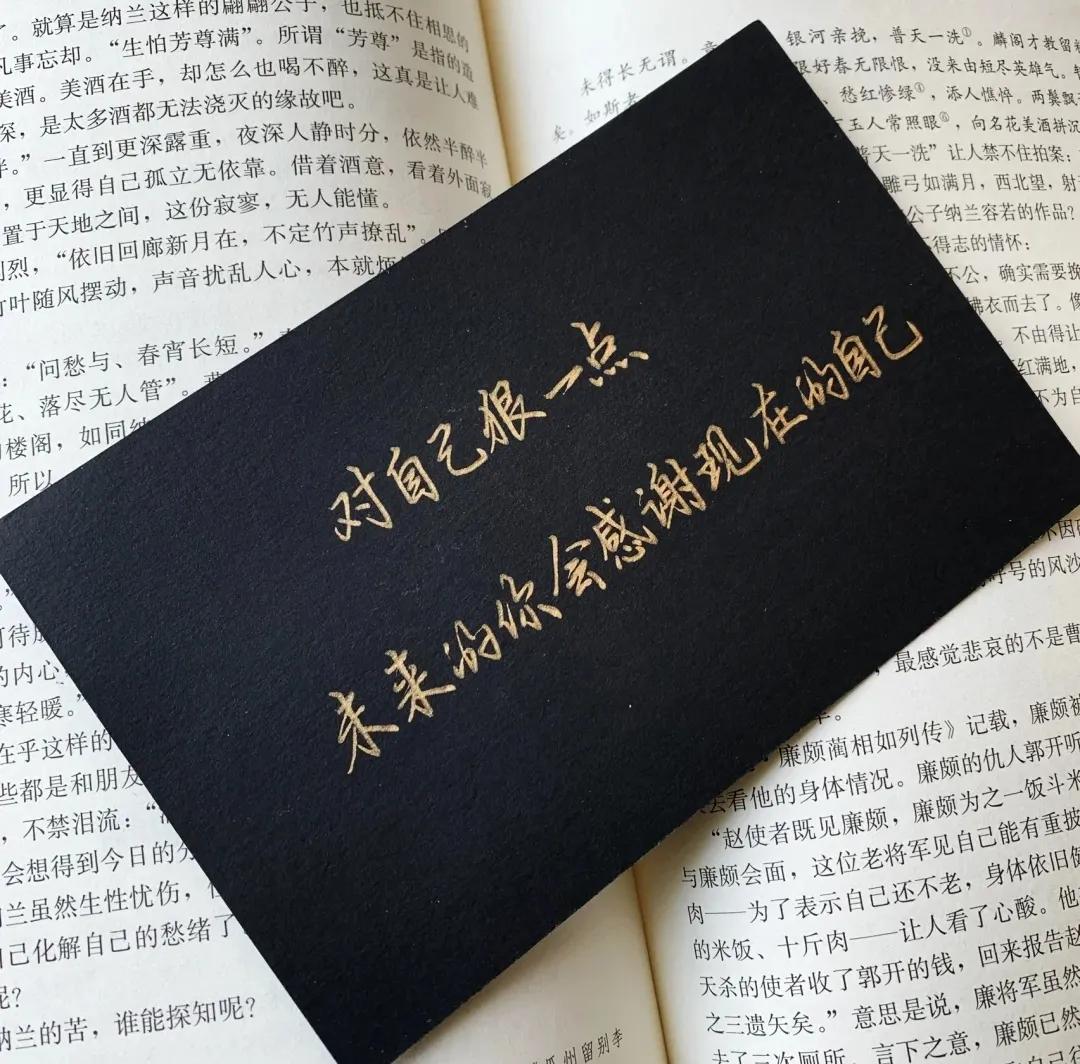 了。就算是纳兰这样的翩翩公子，也抵不住相思的
凡事忘却。“生怕芳尊满”。所谓“芳尊”是指的道
美酒。美酒在手，却怎么也喝不醉，这真是让人难
深，是太多酒都无法浇灭的缘故吧。
半。”一直到更深露重，夜深人静时分，依然半醉半
，更显得自己孤立无依靠。借着酒意，看着外面寂
置于天地之间，这份寂寥，无人能懂。
烈，“依旧回廊新月在，不定竹声撩乱”。
竹叶随风摆动，声音扰乱人心，本就烦
：“问愁与、春宵长短。”
花、落尽无人管”。
楼阁，如同纳
所以
对自己狠一点
未来的你会感谢现在的自己
可待
的内心
寒轻暖。”
在乎这样的
些都是和朋友
，不禁泪流：“
会想得到今日的分
兰虽然生性忧伤，
自己化解自己的愁绪了
呢？
纳兰的苦，谁能探知呢？
未得长无谓。竟
银河亲挽，普天一洗①。麟阁才教留
矣。如斯者
限好春无限恨，没来由短尽英雄气。
愁红惨绿④，添人憔悴。两鬓飘
玉人常照眼⑥，向名花美酒拼沉
普天一洗”让人禁不住拍案：
雕弓如满月，西北望，射
公子纳兰容若的作品？
得志的情怀：
不公，确实需要挽
拂衣而去了。像
不由得让
红满地，
不为自
不因
号的风沙
最感觉悲哀的不是曹
廉颇蔺相如列传》记载，廉颇被
去看他的身体情况。廉颇的仇人郭开听
“赵使者既见廉颇，廉颇为之一饭斗米
与廉颇会面，这位老将军见自己能有重披
肉——为了表示自己还不老，身体依旧健
的米饭、十斤肉——让人看了心酸。他
天杀的使者收了郭开的钱，回来报告赵
之三遗矢矣。”意思是说，廉将军虽然
去了三次厕所。言下之意，廉颇已然
州留别李